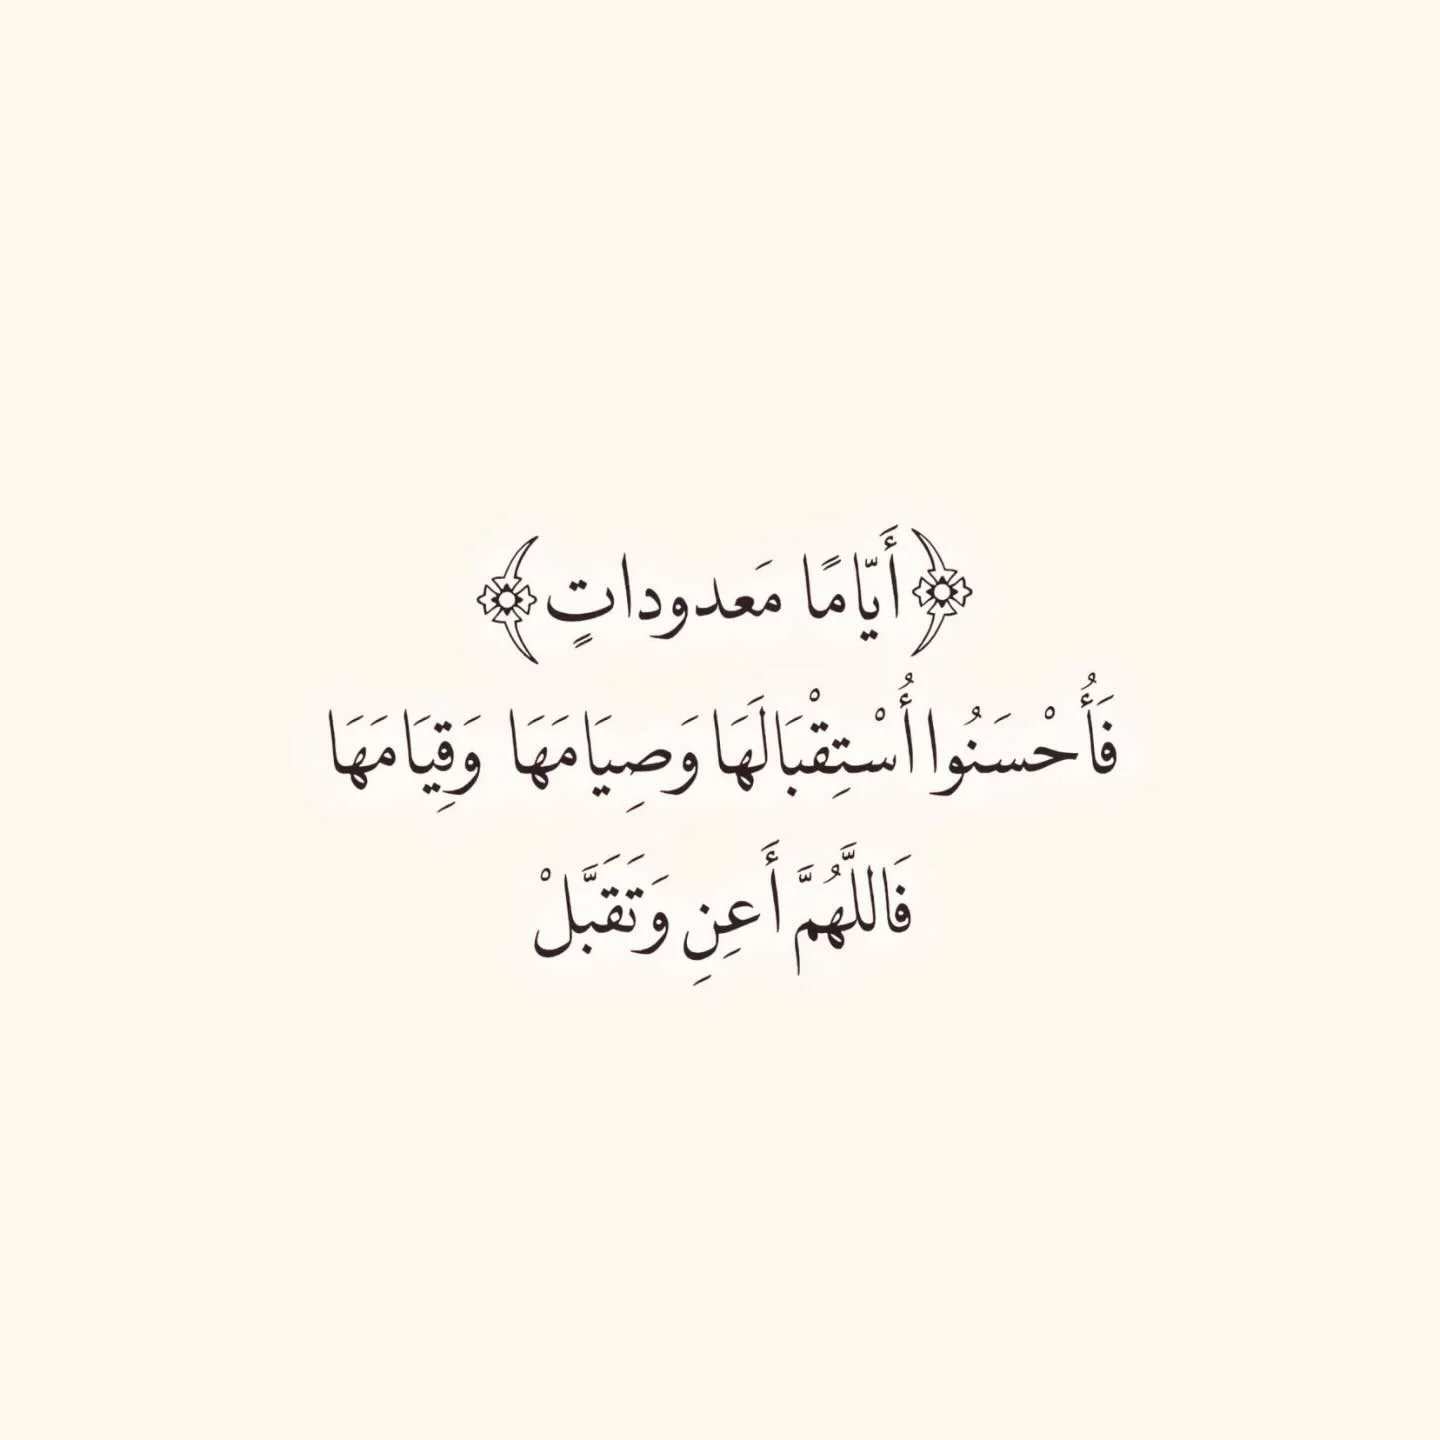 ﴿أَيّامًا مَعدوداتٍ﴾
فَأُحْسَنُوا أُسْتِقْبَالَهَا وَصِيَامَهَا وَقِيَامَهَا
فَاللَّهُمَّ أَعِنِ وَتَقَبَّلْ